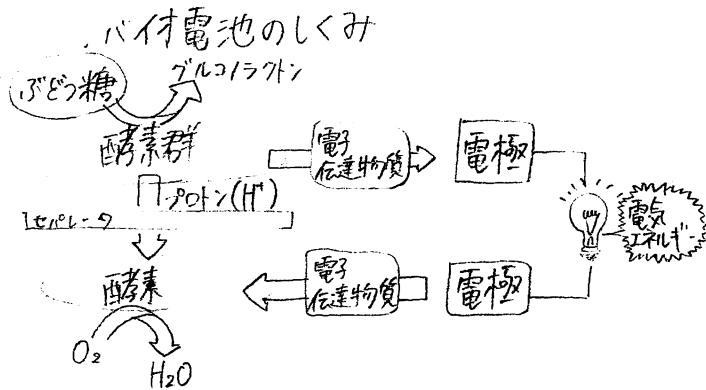 バイオ電池のしくみ
グルコノラクトン
ぶどう糖
酵素群
電子
伝達物質
電極
プロトン(H⁺)
セパレータ
電気
エネルギー
酵素
電子
伝達物質
電極
O₂
H₂O